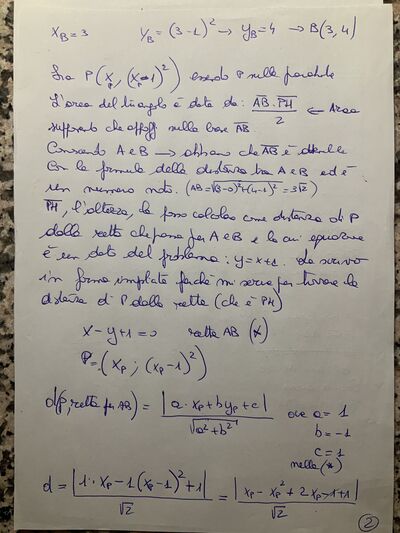 x_B = 3 y_B = (3-1)² → y_B = 4 → B(3,4)
Sia P(x_P, (x_P-1)²) essendo P sulla parabola
L'area del triangolo è data da: AB·PH/2 ← Area
supposto che sulla base AB
Conoscendo A e B → abbiamo che AB è
Con la formula della distanza tra A e B ed è
un numero noto. (AB = √(3-0)²+(4-1)² = 3√2)
PH, l'altezza, la posso calcolare come distanza di P
dalla retta che passa per A e B e la cui equazione
è un dato del problema: y = x+1. La scrivo
in forma implicita perché mi serve per trovare la
distanza di P dalla retta (che è PH)
x - y + 1 = 0 retta AB (*)
P = (x_P ; (x_P-1)²)
d(P, retta per AB) = |a·x_P + b y_P + c| / √a²+b² ove a = 1
b = -1
c = 1
nella (*)
d = |1·x_P - 1(x_P-1)² + 1| / √2 = |x_P - x_P² + 2x_P - 1 + 1| / √2
2